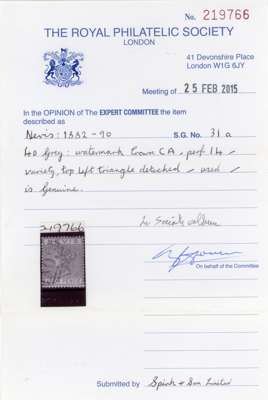 No. 219766
THE ROYAL PHILATELIC SOCIETY
LONDON
41 Devonshire Place
London W1G 6JY
Meeting of 25 FEB 2015
In the OPINION of The EXPERT COMMITTEE the item
described as
Nevis: 1882-90 S.G. No. 31a
4D Grey: watermark Crown CA, perf 14
variety, top left triangle detached, used
is Genuine.
219766
On behalf of the Committee
Submitted by Spink & Son Limited